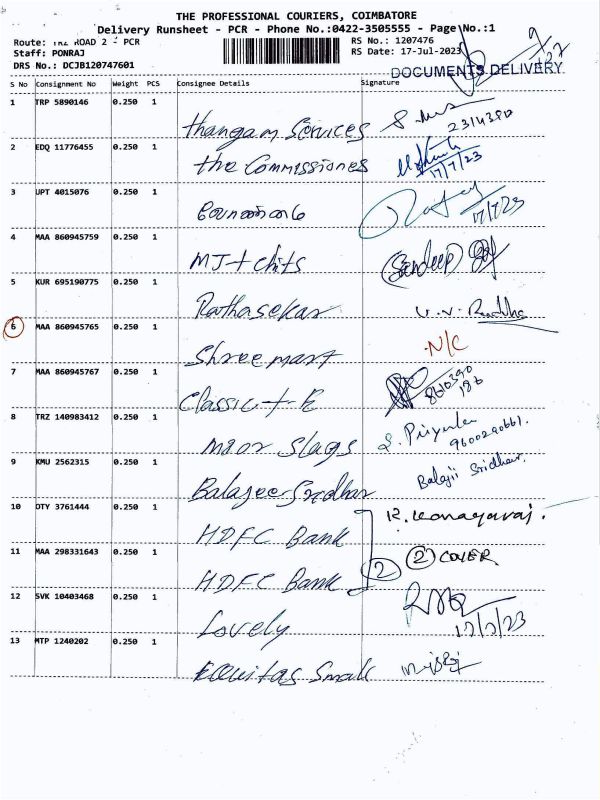 THE PROFESSIONAL COURIERS, COIMBATORE
Delivery Runsheet - PCR - Phone No.:0422-3505555 - Page No.:1
Route: TRZ ROAD 2 - PCR
RS No.: 1207476
Staff: PONRAJ
RS Date: 17-Jul-2023
DRS No.: DCJB120747601
DOCUMENTS DELIVERY
S No Consignment No Weight PCS Consignee Details Signature
1 TRP 5890146 0.250 1
Thangam Services
2 EDQ 11776455 0.250 1
The Commissiones 17/7/23
3 UPT 4015076 0.250 1
17/7/23
4 MAA 860945759 0.250 1
MJ+ chits (Sandeep)
5 KUR 695190775 0.250 1
Rathasekar V.V. Radha
6 MAA 860945765 0.250 1
Shree mart N/C
7 MAA 860945767 0.250 1
Classic + E 8610390
186
8 TRZ 140983412 0.250 1
Maor Slags S. Priyanka
9600290661.
9 KMU 2562315 0.250 1
Balajee Sridhar Balajii Sridhar
10 DTY 3761444 0.250 1
HDFC Bank K. Kanagaraj.
11 MAA 298331643 0.250 1
HDFC Bank 2 2 COVER
12 SVK 10403468 0.250 1
Lovely 17/7/23
13 MTP 1240202 0.250 1
Equitas Small